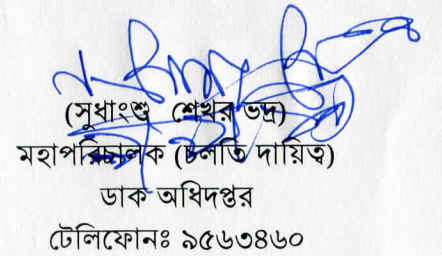 (সুধাংশু শেখর ভদ্র)
মহাপরিচালক (চলতি দায়িত্ব)
ডাক অধিদপ্তর
টেলিফোনঃ ৯৫৬৩৪৬০